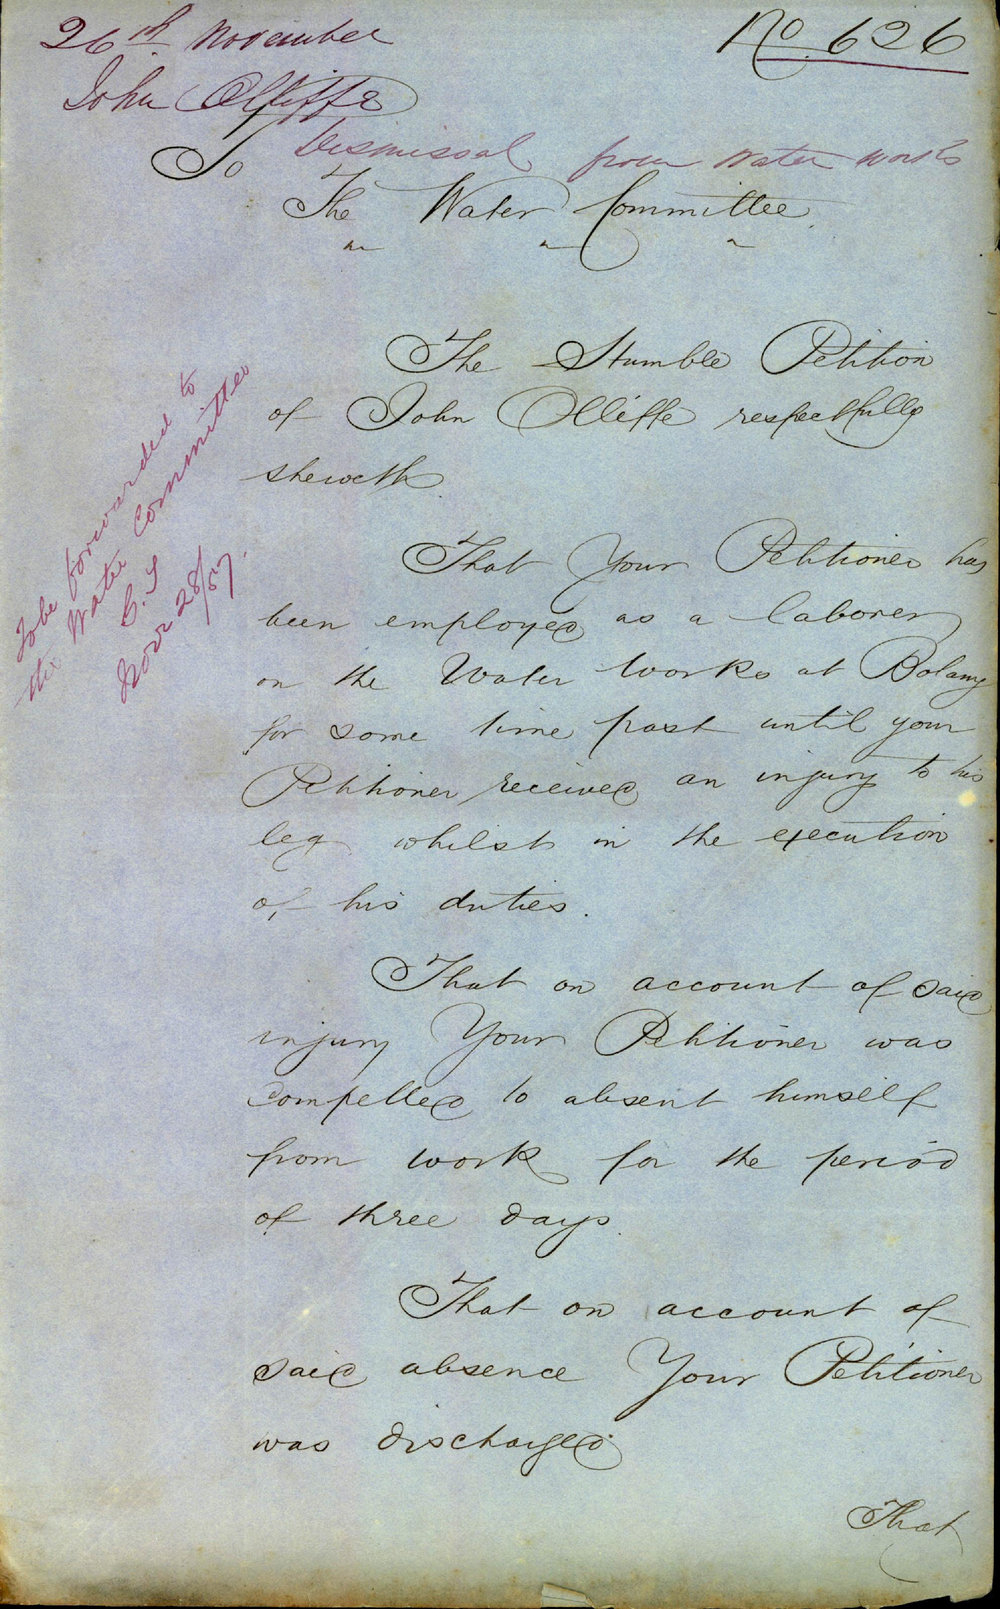 26th November
No. 626
John Olliffe
Dismissal from Water Works
To
The Water Committee
The Humble Petition
of John Olliffe respectfully
sheweth
That Your Petitioner has
been employed as a laborer
on the Water Works at Botany
for some time past until your
Petitioner received an injury to his
leg whilst in the execution
of his duties.
That on account of said
injury Your Petitioner was
compelled to absent himself
from work for the period
of three days.
That on account of
said absence Your Petitioner
was discharged
That
To be forwarded to
the Water Committee
Novr 28/57.